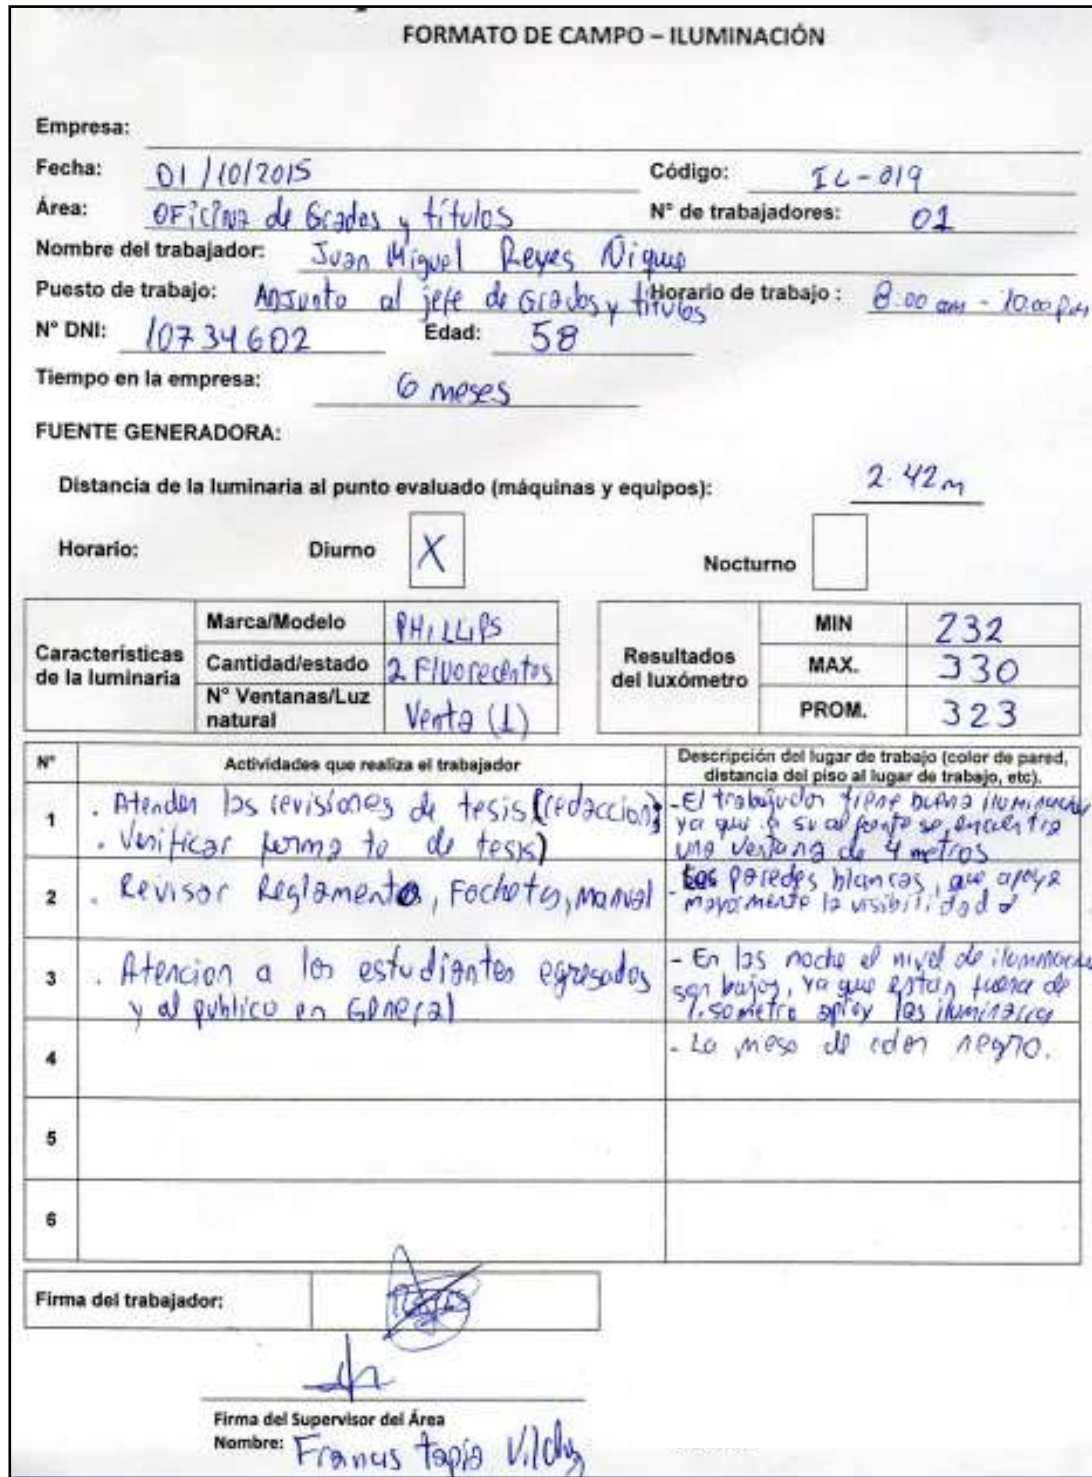 FORMATO DE CAMPO – ILUMINACIÓN
Empresa:
Fecha: 01/10/2015 Código: IL-019
Área: OFicina de Grados y títulos N° de trabajadores: 01
Nombre del trabajador: Juan Miguel Reyes Ñique
Puesto de trabajo: Adjunto al jefe de Grados y títulos Horario de trabajo : 8:00 am - 10:00 pm
N° DNI: 10734602 Edad: 58
Tiempo en la empresa: 6 meses
FUENTE GENERADORA:
Distancia de la luminaria al punto evaluado (máquinas y equipos): 2.42m
Horario: Diurno X Nocturno
Características de la luminaria
Marca/Modelo PHILLIPS
Cantidad/estado 2 Fluorecentes
N° Ventanas/Luz natural Venta (1)
Resultados del luxómetro
MIN 232
MAX. 330
PROM. 323
N° Actividades que realiza el trabajador Descripción del lugar de trabajo (color de pared, distancia del piso al lugar de trabajo, etc).
1 . Atender las revisiones de tesis (redaccion,
. Verificar formato de tesis)
- El trabajador tiene buena iluminacion
ya que a su al frente se encuentra
una ventana de 4 metros
2 . Revisar Reglamento, Manual
- Las paredes blancas, que apoya
mayormente la visibilidad
3 . Atencion a los estudiantes egresados
y al publico en General
- En las noche el nivel de iluminacion
son bajos, ya que estan fuera de
1.50 metro las iluminaria
4 - La mesa de color negro.
5
6
Firma del trabajador:
Firma del Supervisor del Área
Nombre: Francis tapia Vilchez